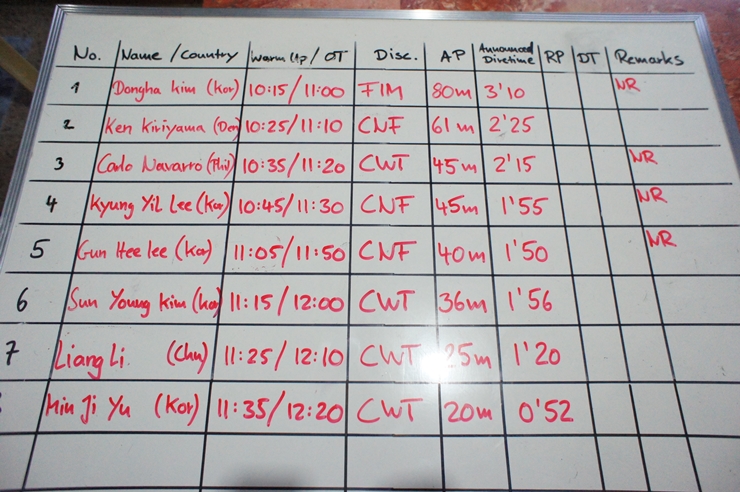 No. Name / Country Warm Up / OT Disc. AP Announced Divetime RP DT Remarks
1 Dongha Kim (Kor) 10:15 / 11:00 FIM 80m 3'10 NR
2 Ken Kiriyama (Den) 10:25 / 11:10 CNF 61m 2'25
3 Carlo Navarro (Phil) 10:35 / 11:20 CWT 45m 2'15 NR
4 Kyung Yil Lee (Kor) 10:45 / 11:30 CNF 45m 1'55 NR
5 Gun Hee lee (Kor) 11:05 / 11:50 CNF 40m 1'50 NR
6 Sun Young Kim (Kor) 11:15 / 12:00 CWT 36m 1'56
7 Liang Li (Chn) 11:25 / 12:10 CWT 25m 1'20
Min Ji Yu (Kor) 11:35 / 12:20 CWT 20m 0'52